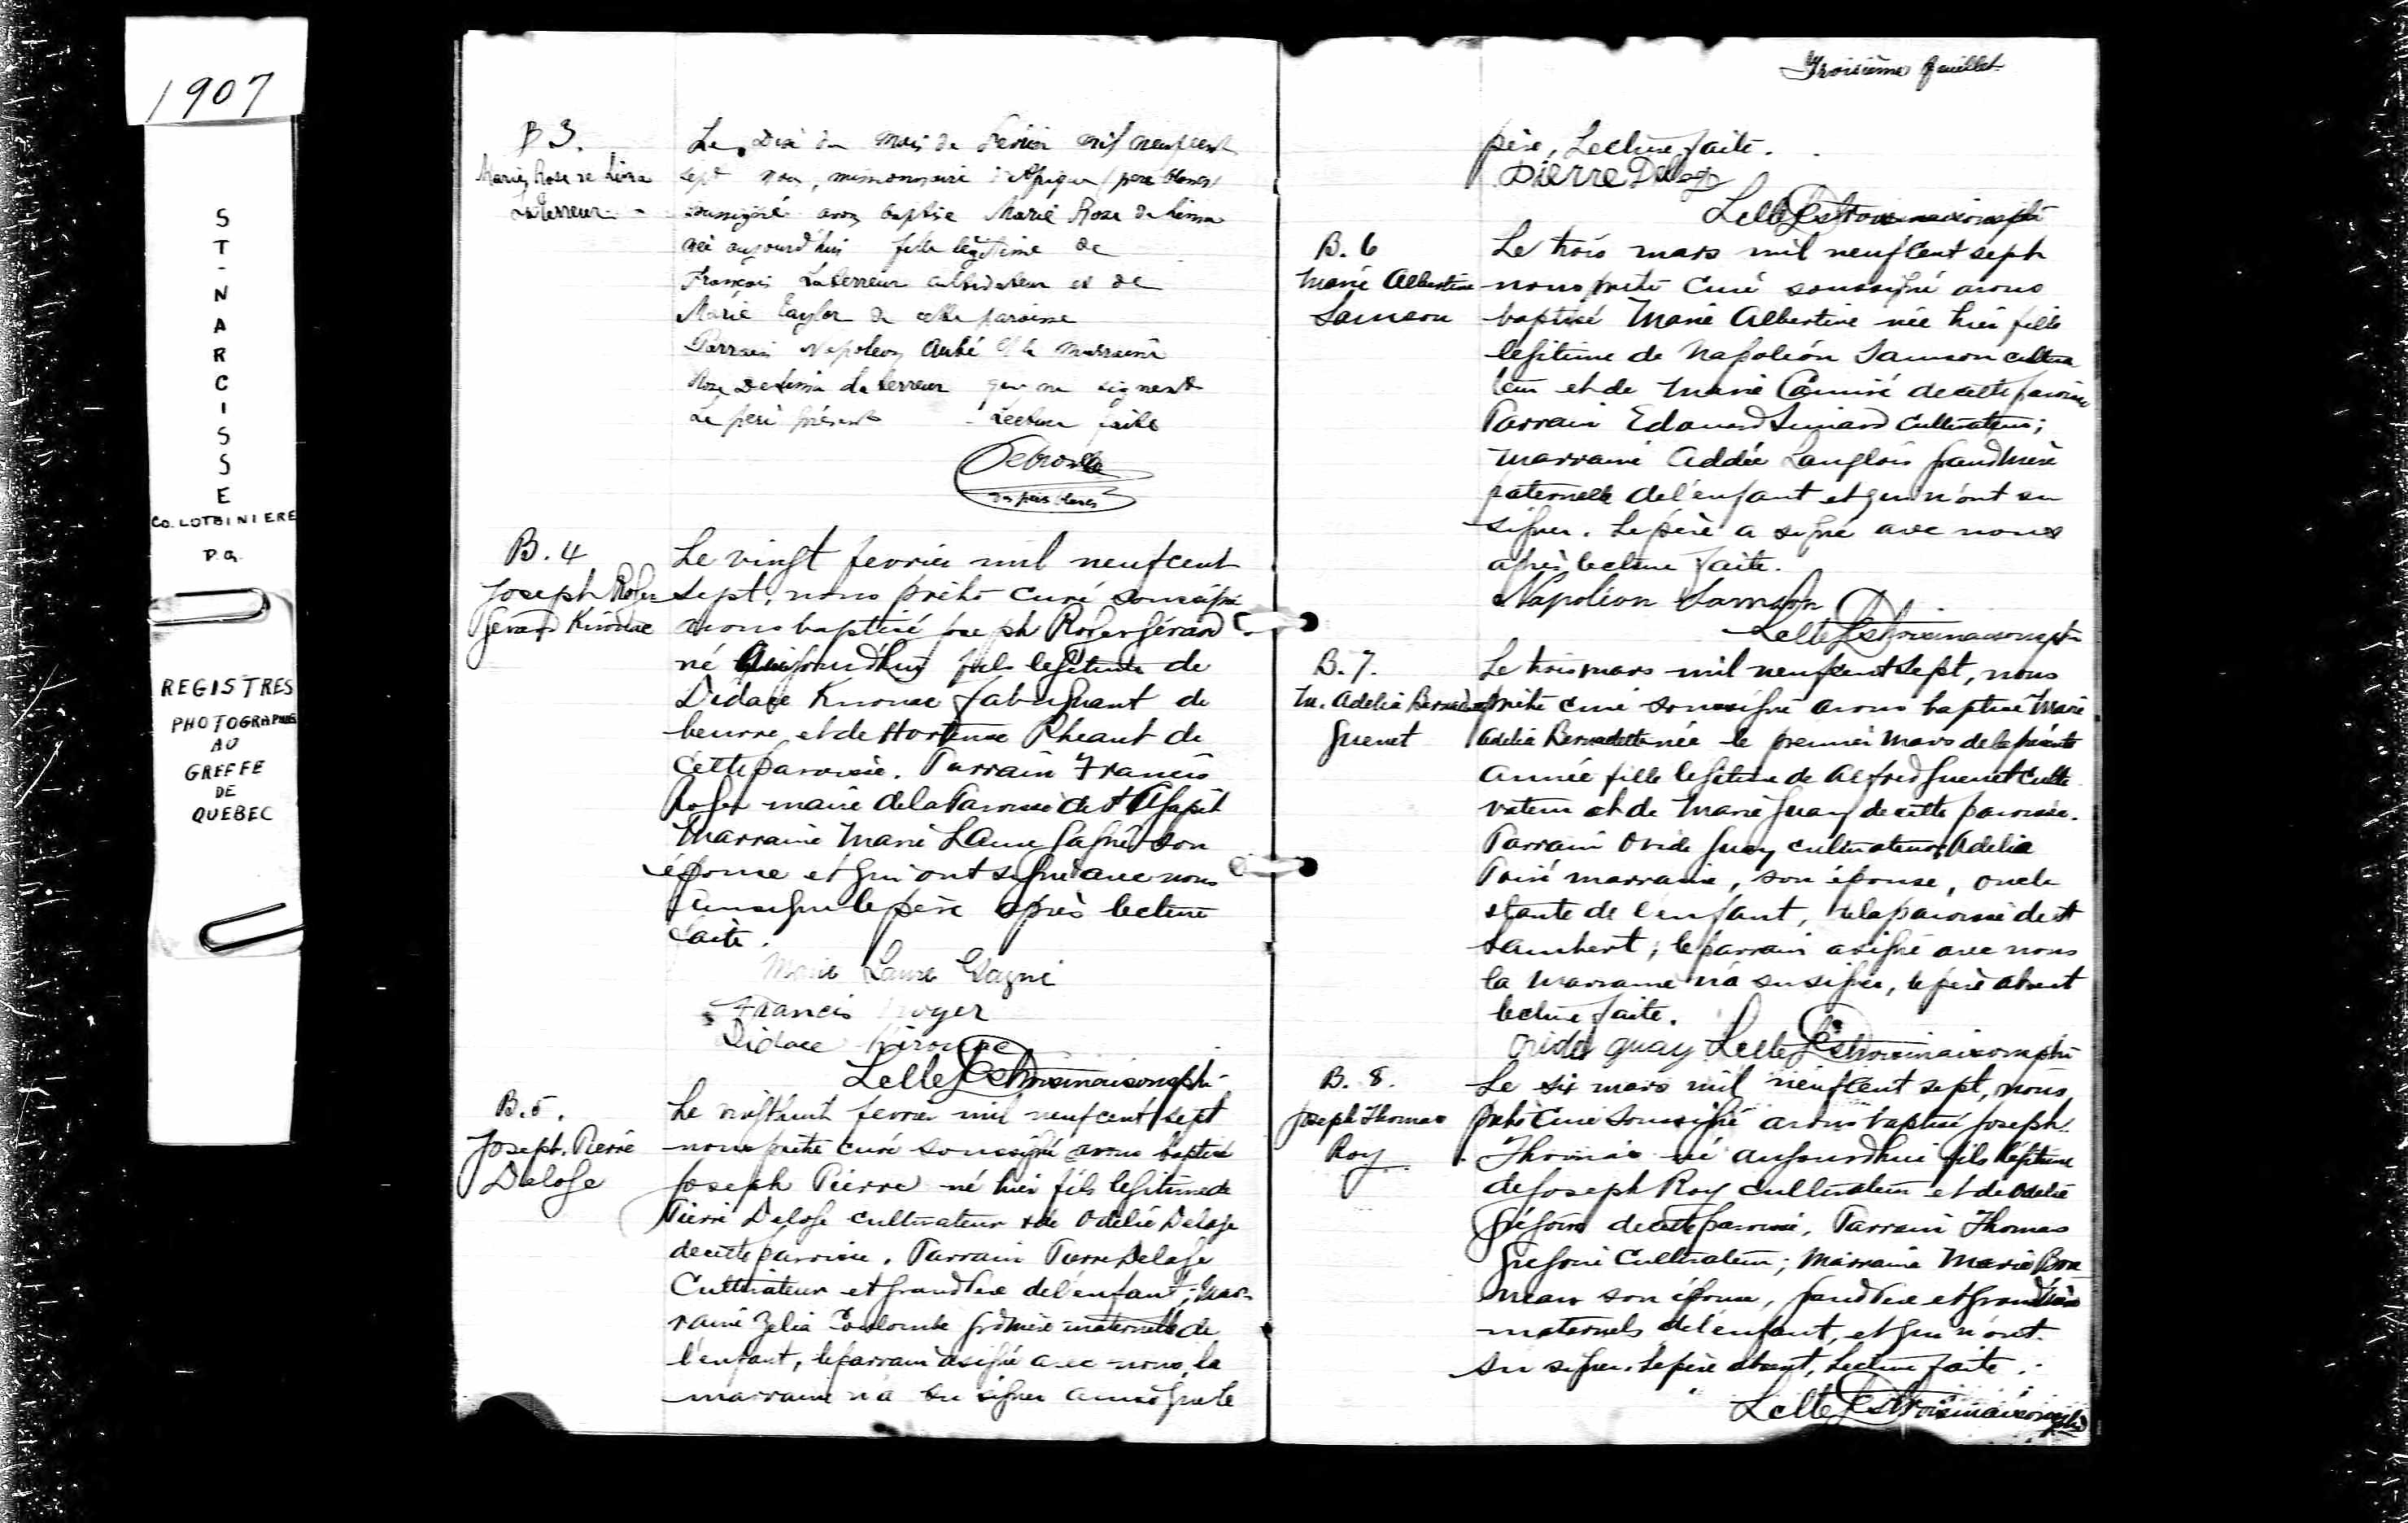 1907
ST-NARCISSE
CO. LOTBINIERE
P.Q.
REGISTRES
PHOTOGRAPHIÉS
AU
GREFFE
DE
QUEBEC
B 3.
Marie Rose de Lima
Laterreur
Le Dix du mois de Février mil neuf cent
sept nous, missionnaire d'Afrique (père blanc)
soussigné avons baptisé Marie Rose de Lima
née aujourd'hui fille légitime de
François Laterreur cultivateur et de
Marie Taylor de cette paroisse
Parrain Napoleon Aubé et la marraine
Rose Delima Laterreur qui ne signent
Le père présent Lecture faite
des pères blancs
B. 4
Joseph Roger
Gérard Kirouac
Le vingt fevrier mil neuf cent
sept, nous prêtre curé soussigné
avons baptisé Joseph Roger Gérard
né aujourdhui fils legitime de
Didace Kirouac fabriquant de
beurre et de Hortense Rheaut de
cette paroisse. Parrain Francis
Roger maire de la Paroisse de St Agapit
Marraine Marie Laure Gagné son
épouse et qui ont signé avec nous
ainsi que le père après lecture
faite.
Marie Laure Gagné
Francis Roger
Didace Kirouac
Lelle Destroismaisons ptre
B. 5.
Joseph. Pierre
Deloge
Le vingthuit fevrier mil neuf cent sept
nous prêtre curé soussigné avons baptisé
Joseph Pierre né hier fils legitime de
Pierre Deloge cultivateur & de Odelie Deloge
de cette paroisse. Parrain Pierre Deloge
Cultivateur et grand Père de l'enfant; Mar-
raine Zelia Coulombe grdmère maternelle de
l'enfant, le parrain a signé avec nous, la
marraine n'a su signer ainsi que le
Troisième feuillet
père, Lecture faite.
Pierre Deloge
Lelle Destroismaisons ptre
B. 6
Marie Albertine
Samson
Le trois mars mil neuf cent sept
nous prêtre Curé soussigné avons
baptisé Marie Albertine née hier fille
legitime de Napoléon Samson cultiva
teur et de Marie Camiré de cette paroisse
Parrain Edouard Simard Cultivateur;
marraine Addée Langlois grand Mère
paternelle de l'enfant et qui n'ont su
signer. Le père a signé avec nous
après lecture faite.
Napoléon Samson
Lelle Destroismaisons ptre
B. 7.
M. Adelia Bernadette
Guenet
Le trois mars mil neuf cent sept, nous
prêtre curé soussigné avons baptisé Marie
Adelia Bernadette née le premier Mars de la présente
année fille legitime de Alfred Guenet Culti
vateur et de Marie Guay de cette paroisse.
Parrain Ovide Guay cultivateur & Adelia
Poiré marraine, son épouse, oncle
& tante de l'enfant, de la paroisse de St
Lambert; le parrain a signé avec nous
la Marraine n'a su signer, le père absent
lecture faite.
Ovide Guay Lelle Destroismaisons ptre
B. 8.
Joseph Thomas
Roy
Le six mars mil neuf cent sept, nous,
prêtre Curé soussigné avons baptisé Joseph
Thomas né aujourdhui fils légitime
de Joseph Roy cultivateur et de Odelie
Grégoire de cette paroisse, Parrain Thomas
Gregoire Cultivateur; Marraine Marie
son épouse, grand Père et grand Mère
maternels de l'enfant, et qui n'ont
su signer. Le père absent, Lecture faite.
Lelle Destroismaisons ptre